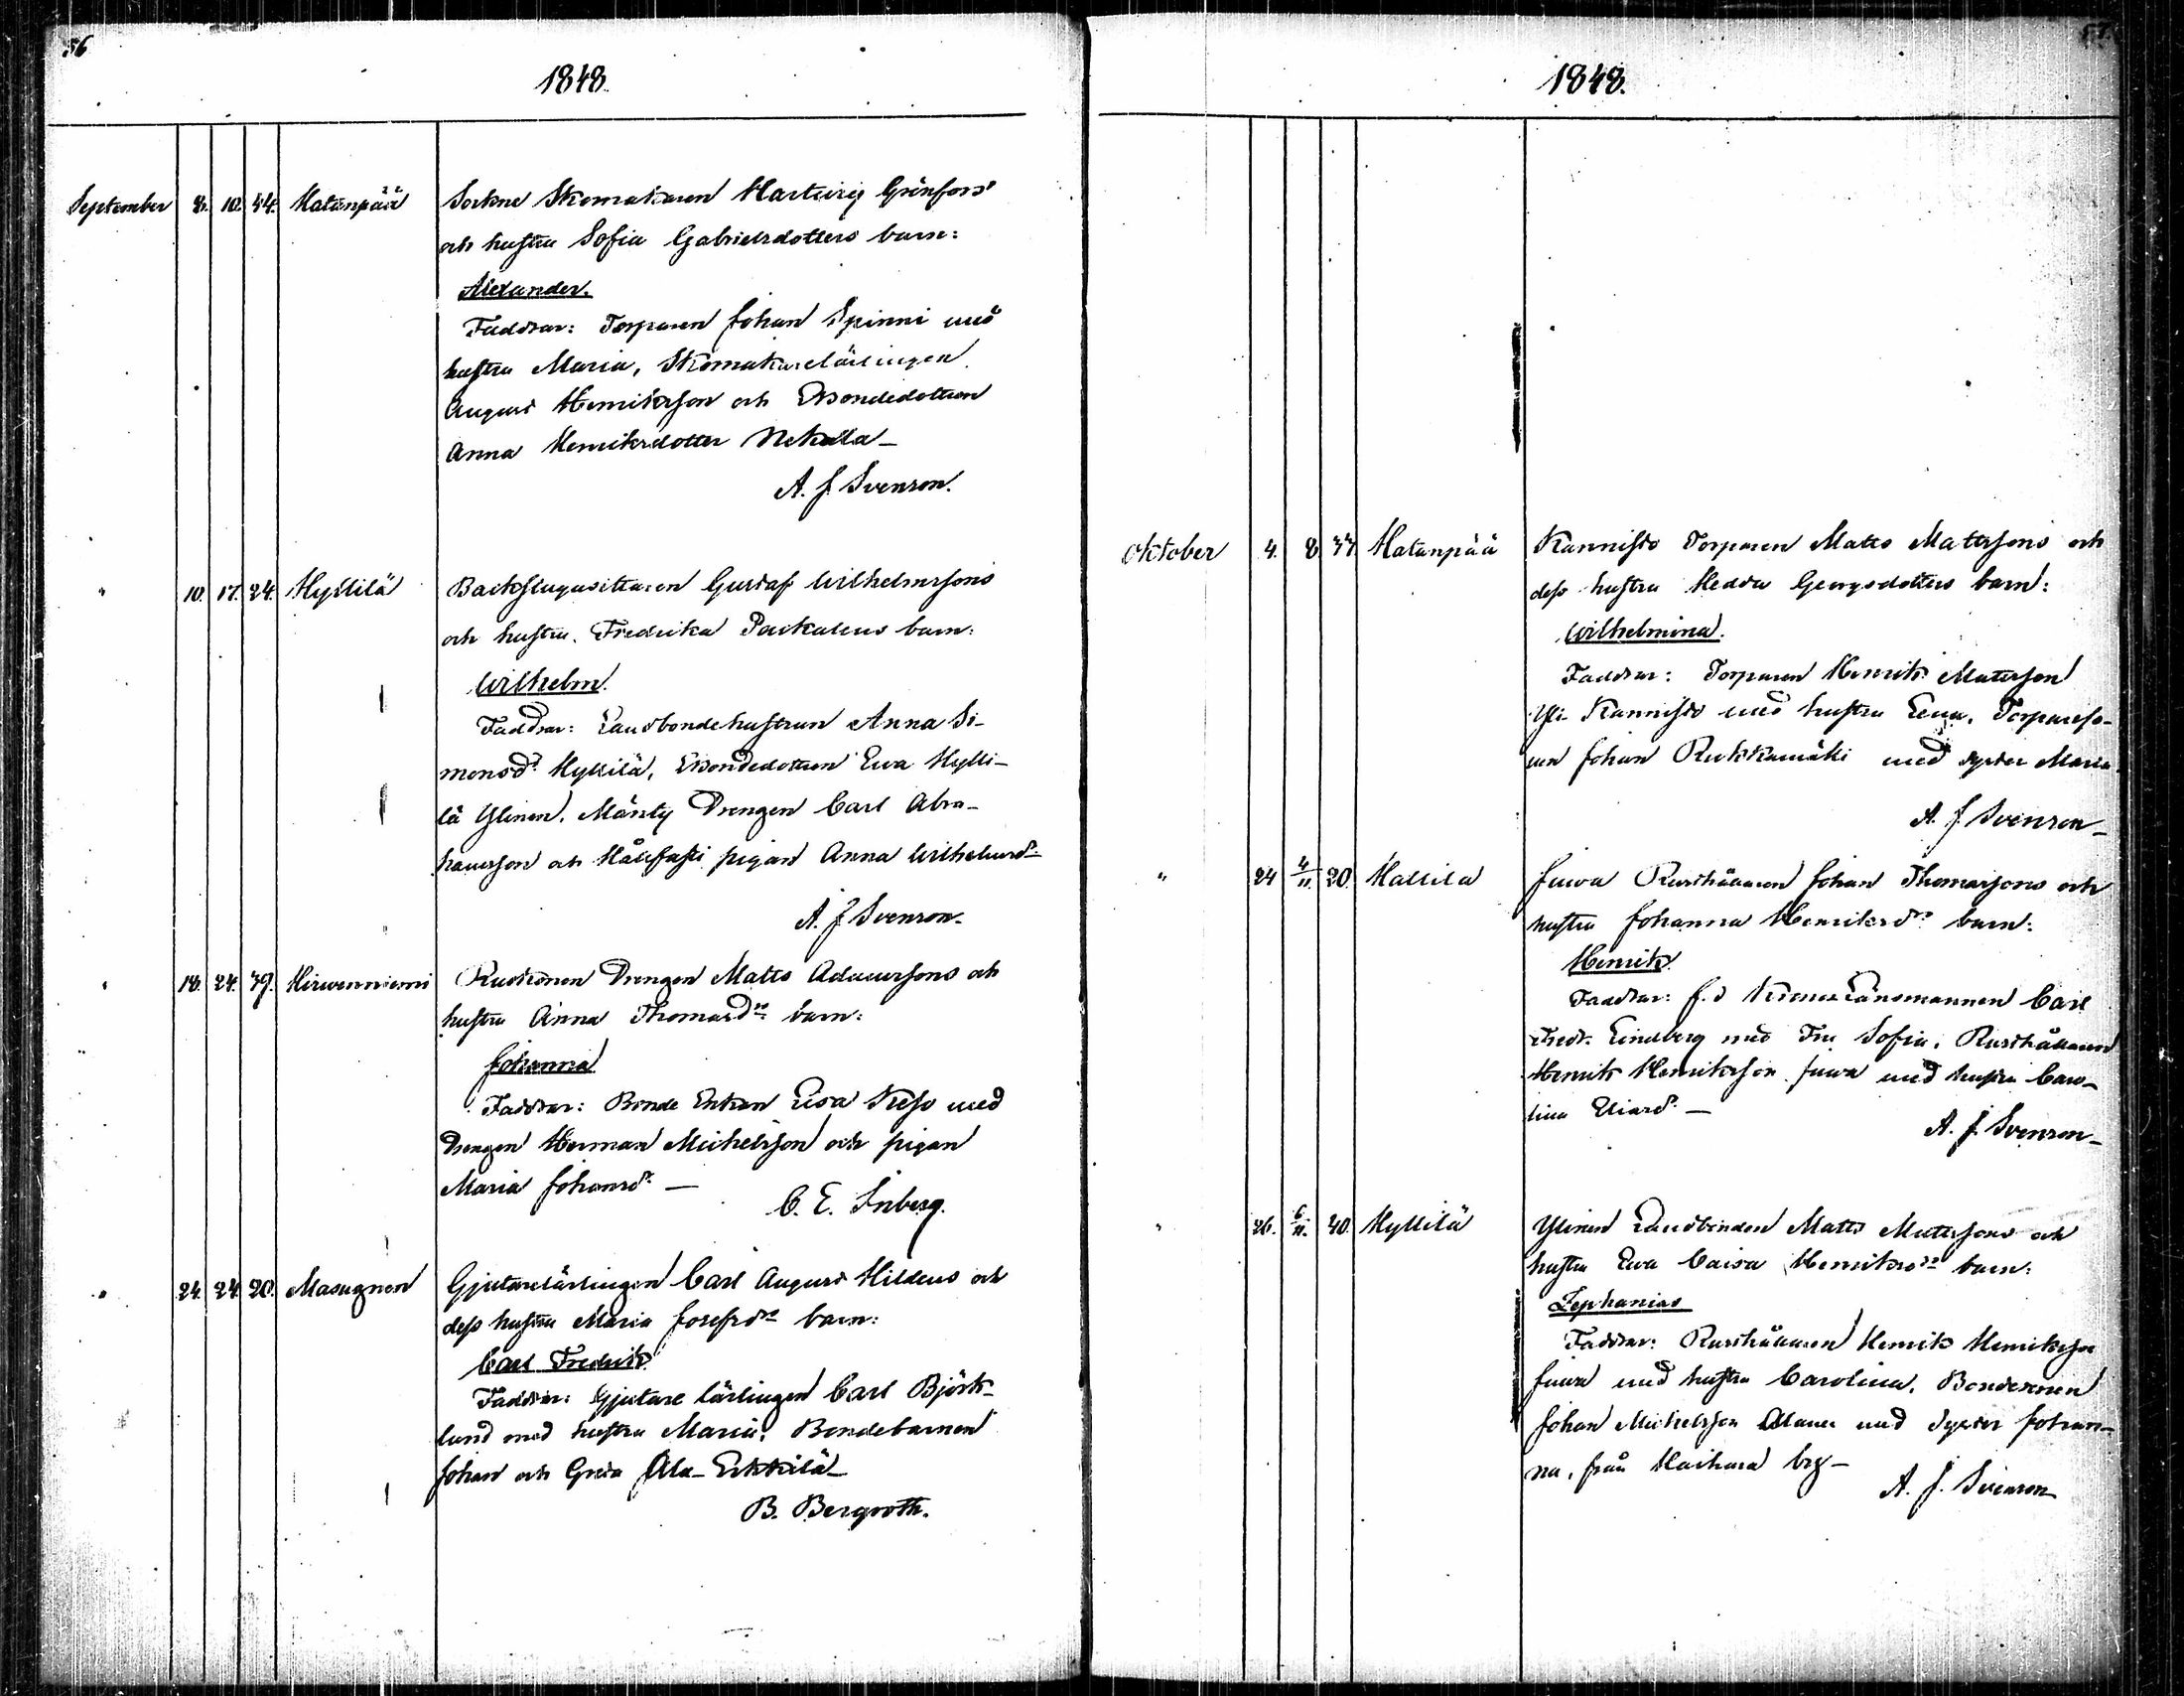 56
1848.
September 8. 10. 44. Hatanpää Sockne Skomakaren Hartwig Grönfors
och hustru Sofia Gabrielsdotters barn:
Alexander.
Faddrar: Torparen Johan Spinni med
hustru Maria, Skomakarelärlingen
August Henriksson och Bondedottren
Anna Henriksdotter Nekala_
A. J. Svenson.
" 10. 17. 24. Hyllilä Backstugusittaren Gustaf Wilhelmssons
och hustru Fredrika barn:
Wilhelm.
Faddrar: Landbondehustrun Anna Si-
monsd:r Hyllilä, Bondedottren Ewa Hylli-
lä Ylinen, Mänty Drengen Carl Abra-
hamsson och pigan Anna Wilhelmsd:r
A. J. Svenson.
" 18. 24. 39. Hirwenniemi Ruskonen Drengen Matts Adamssons och
hustru Anna Thomasd:rs barn:
Johanna
Faddrar: Bonde Enkan Lisa Keso med
Drengen Herman Michelsson och pigan
Maria Johansd:r —
C. E. Inberg.
" 24. 24. 20. Masugnen Gjutarelärlingen Carl August Hildens och
dess hustru Maria Josefsd:rs barn:
Carl Fredrik
Faddrar: Gjutare lärlingen Carl Björk-
lund med hustru Maria, Bondebarnen
Johan och Greta Ala-Erkkilä_
B. Bergroth.
1848.
Oktober 4. 8. 37. Hatanpää Kannisto Torparen Matts Matssons och
dess hustru Hedda Georgsdotters barn:
Wilhelmina.
Faddrar: Torparen Henrik Matsson
Yli-Kannisto med hustru Lena, Torpareso-
nen Johan Rukkamäki med syster Maria.
A. J. Svenson_
" 24 4/11. 20. Hallila Juwa Rusthållaren Johan Thomassons och
hustru Johanna Henriksd:rs barn:
Henrik.
Faddrar: f.d Länsmannen Carl
Fredr. Lindberg med Fru Sofia, Rusthållaren
Henrik Henriksson Juwa med hustru Caro-
lina Eliasd:r —
A. J. Svenson_
" 26. 6/11. 40. Hyllilä Ylinen Landbonden Matts Matssons och
hustru Ewa Caisa Henriksd:rs barn:
Zephanias
Faddrar: Rusthållaren Henrik Henriksson
Juwa med hustru Carolina, Bondesonen
Johan Michelsson med Syster Johan-
na, från Haihara by_
A. J. Svenson